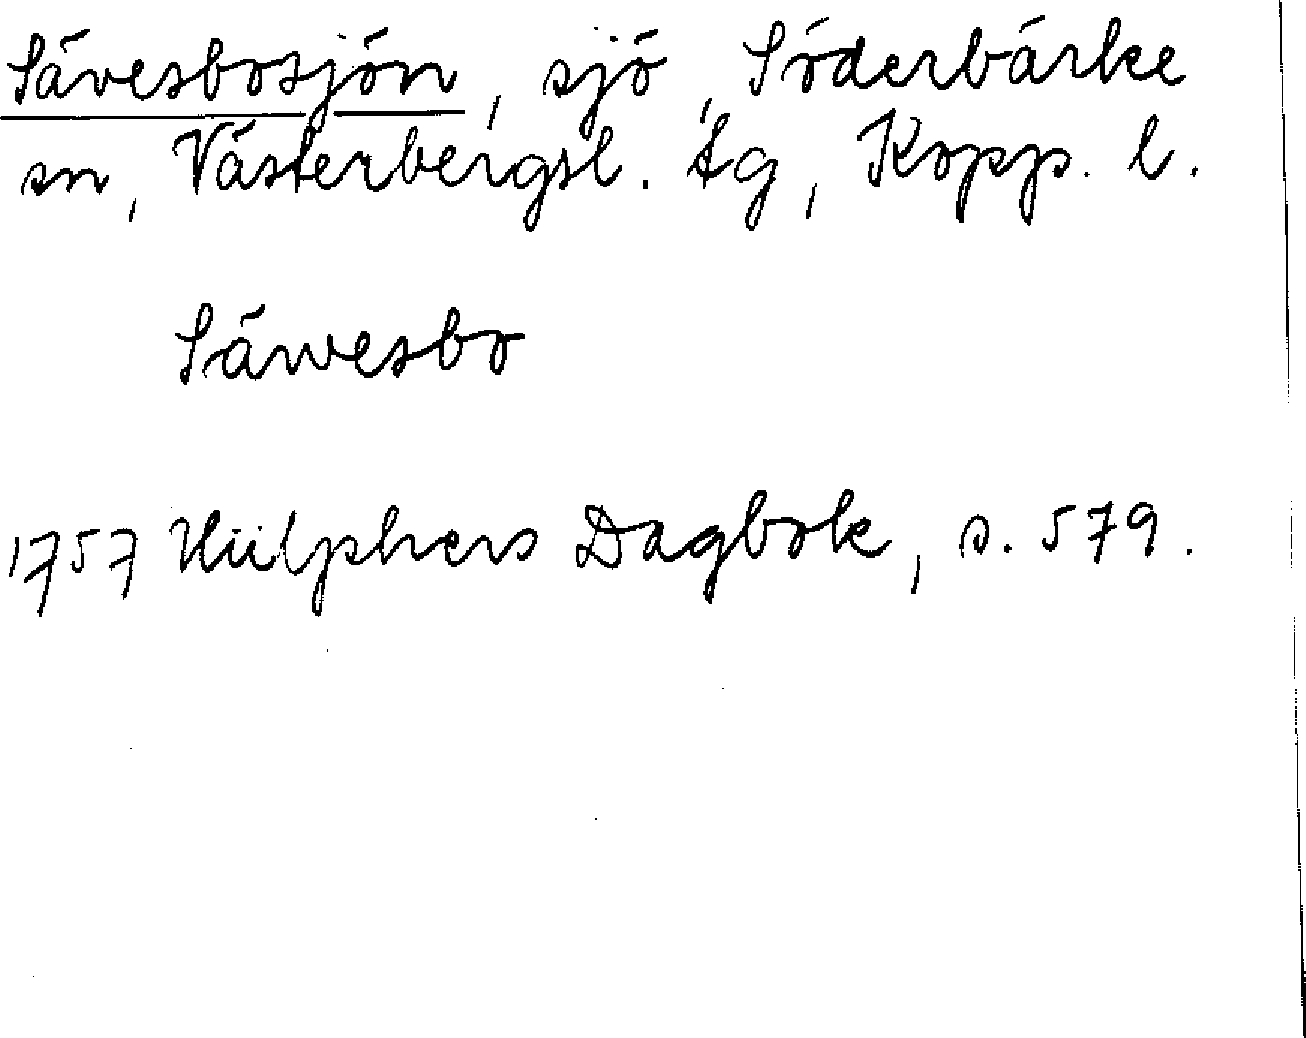 Sävesbosjön, sjö, Söderbärke
sn, Västerbergsl. tg, Kopp. l.
Säwesbo
1757 Hülphers Dagbok, s. 579.